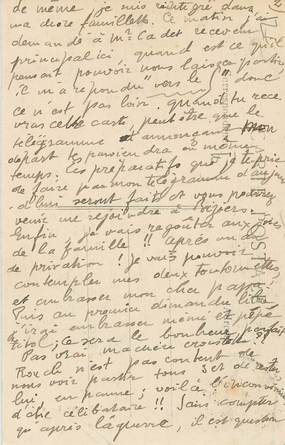 de même je suis réintégré dans
ma chère famillette. Ce matin j'ai
demandé à Mr Cadet receveur
principal ici quand est ce qu'il
pensait pouvoir nous laisser partir
il m'a répondu "vers le" donc
ce n'est pas loin. quand tu rece
vras cette carte, peut être que le
télégramme annonçant mon
départ te parviendra en même
temps. Les préparatifs que je te prie
de faire par mon télégramme d'aujour
d'hui seront faits et vous pourrez
venir me rejoindre à
Enfin je vais regoûter aux joies
de la famille !! après un an
de privation ! Je vais pouvoir
contempler mes deux
et embrasser mon cher papa.
Puis au premier dimanche libre
j'irai embrasser mémé et pépé
Titol, ce sera le bonheur parfait
Pas vrai ma chère croustille !
Roch n'est pas content de
nous voir partir tous et de rester
lui en panne ; voilà l'inconvénient
d'être célibataire !! Sans compter
qu'après la guerre, il est question